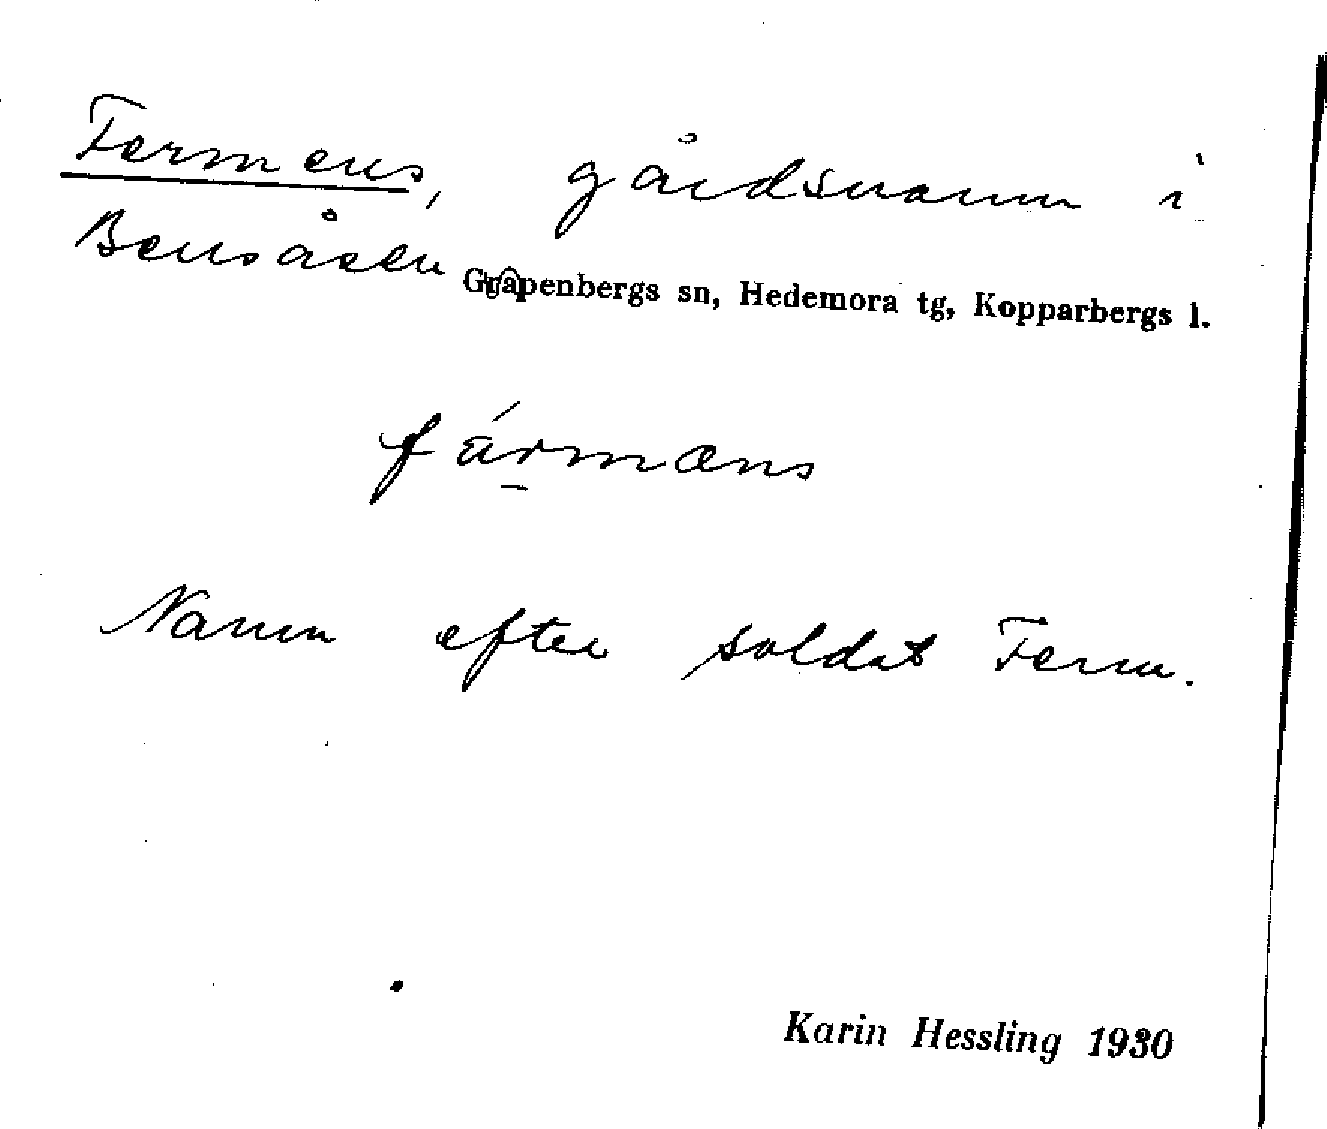 Fermens, gårdsnamn i
Bensåsen Garpenbergs sn, Hedemora tg, Kopparbergs l.
färmæns
Namn efter soldat Ferm.
Karin Hessling 1930